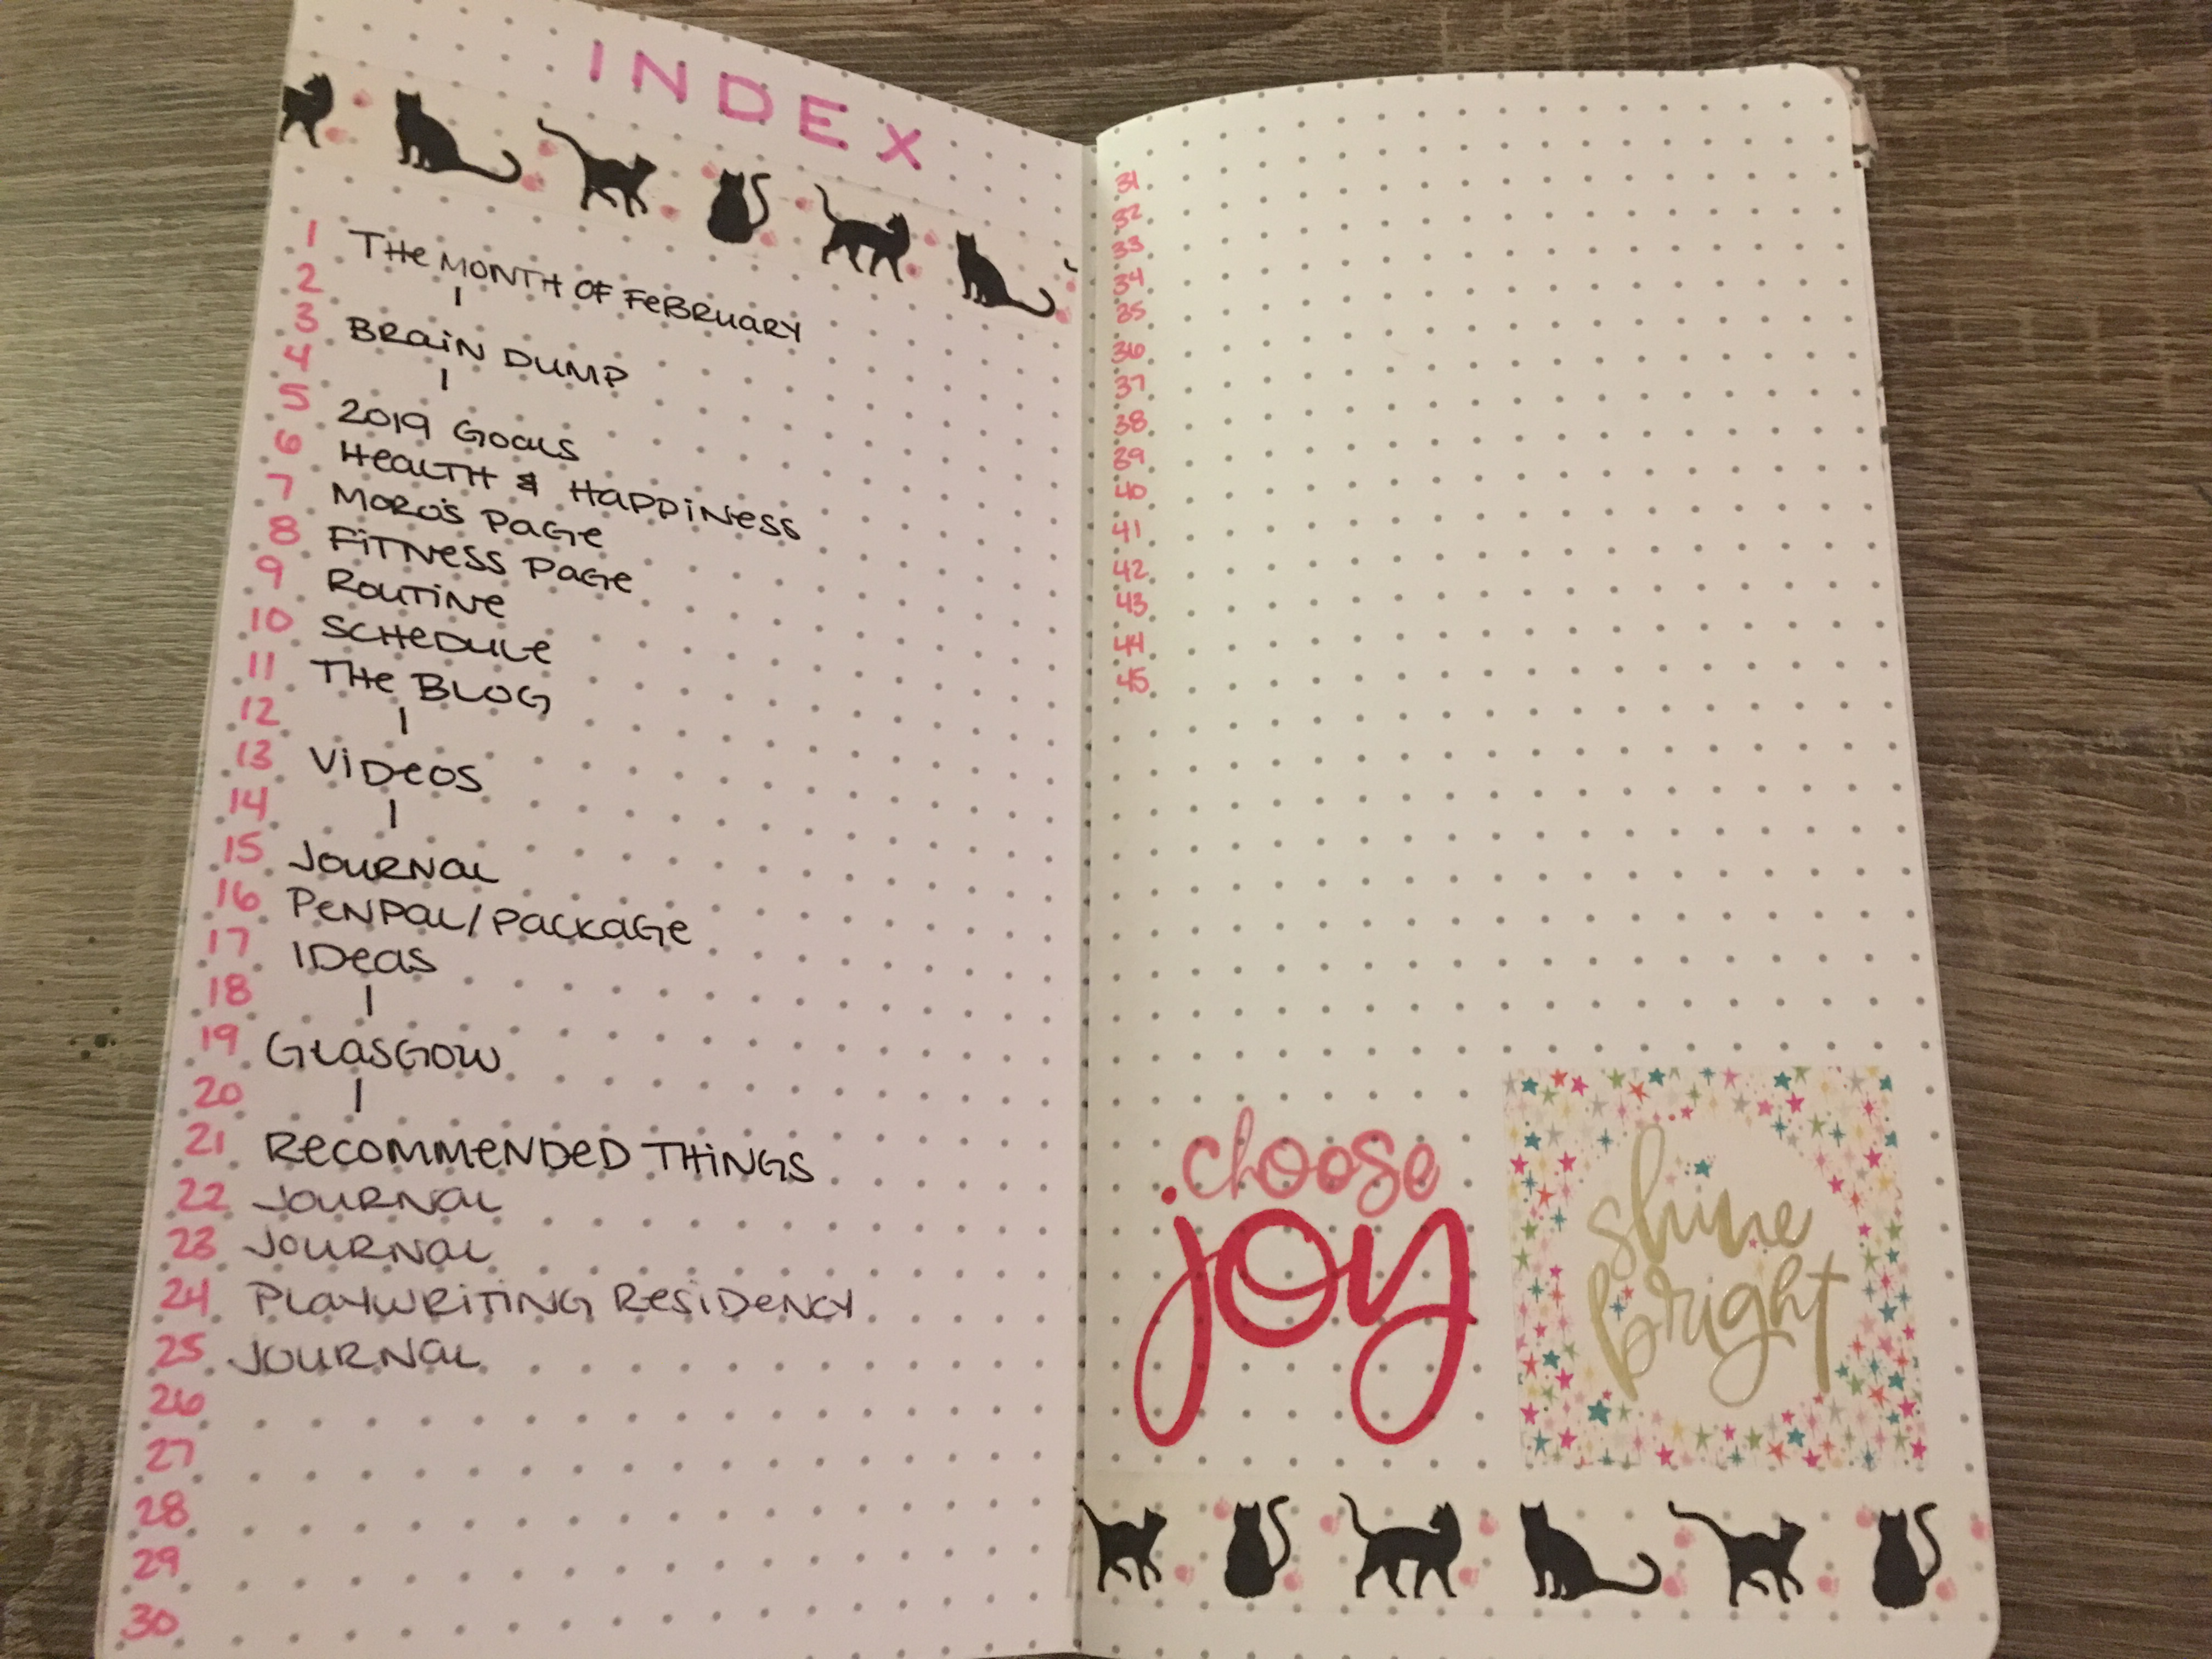 INDEX
1 THE MONTH OF FEBRUARY
2 |
3 BRAIN DUMP
4 |
5 2019 GOALS
6 HEALTH & HAPPINESS
7 MORO'S PAGE
8 FITNESS PAGE
9 ROUTINE
10 SCHEDULE
11 THE BLOG
12 |
13 VIDEOS
14 |
15 JOURNAL
16 PENPAL/PACKAGE
17 IDEAS
18 |
19 GLASGOW
20 |
21 RECOMMENDED THINGS
22 JOURNAL
23 JOURNAL
24 PLAYWRITING RESIDENCY
25 JOURNAL
26
27
28
29
30
31
32
33
34
35
36
37
38
39
40
41
42
43
44
45
choose
joy
shine
bright